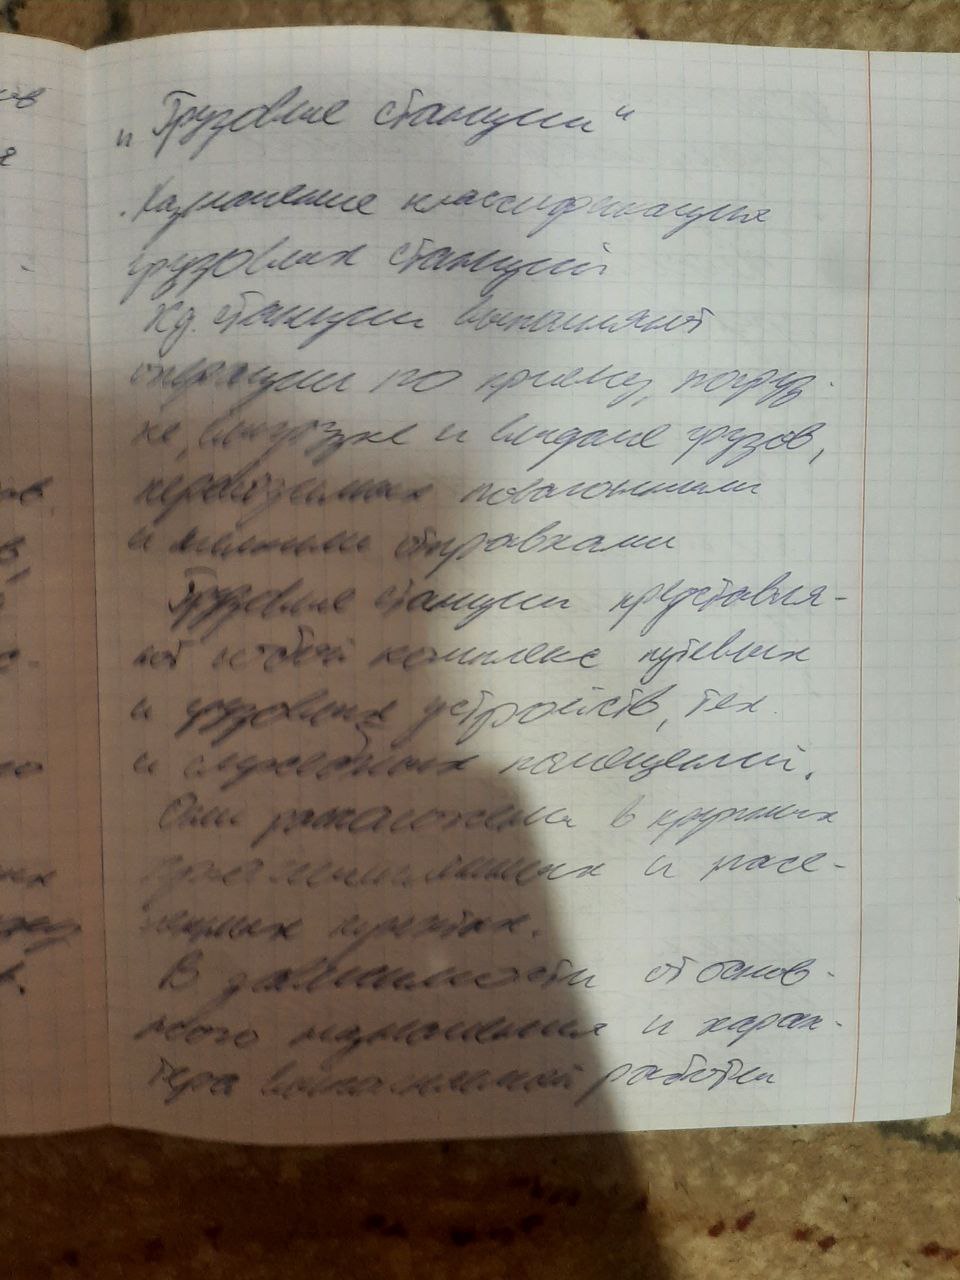 „Грузовые станции“
Назначение классификация
грузовых станций
Жд. станции выполняют
операции по приему, погруз-
ке, выгрузке и выдаче грузов,
перевозимых повагонными
и мелкими отправками
Грузовые станции представля-
ют собой комплекс путевых
и грузовых устройств, тех.
и служебных помещений.
Они расположены в крупных
промышленных и насе-
ленных пунктах.
В зависимости от основ-
ного назначения и харак-
тера выполняемой работы